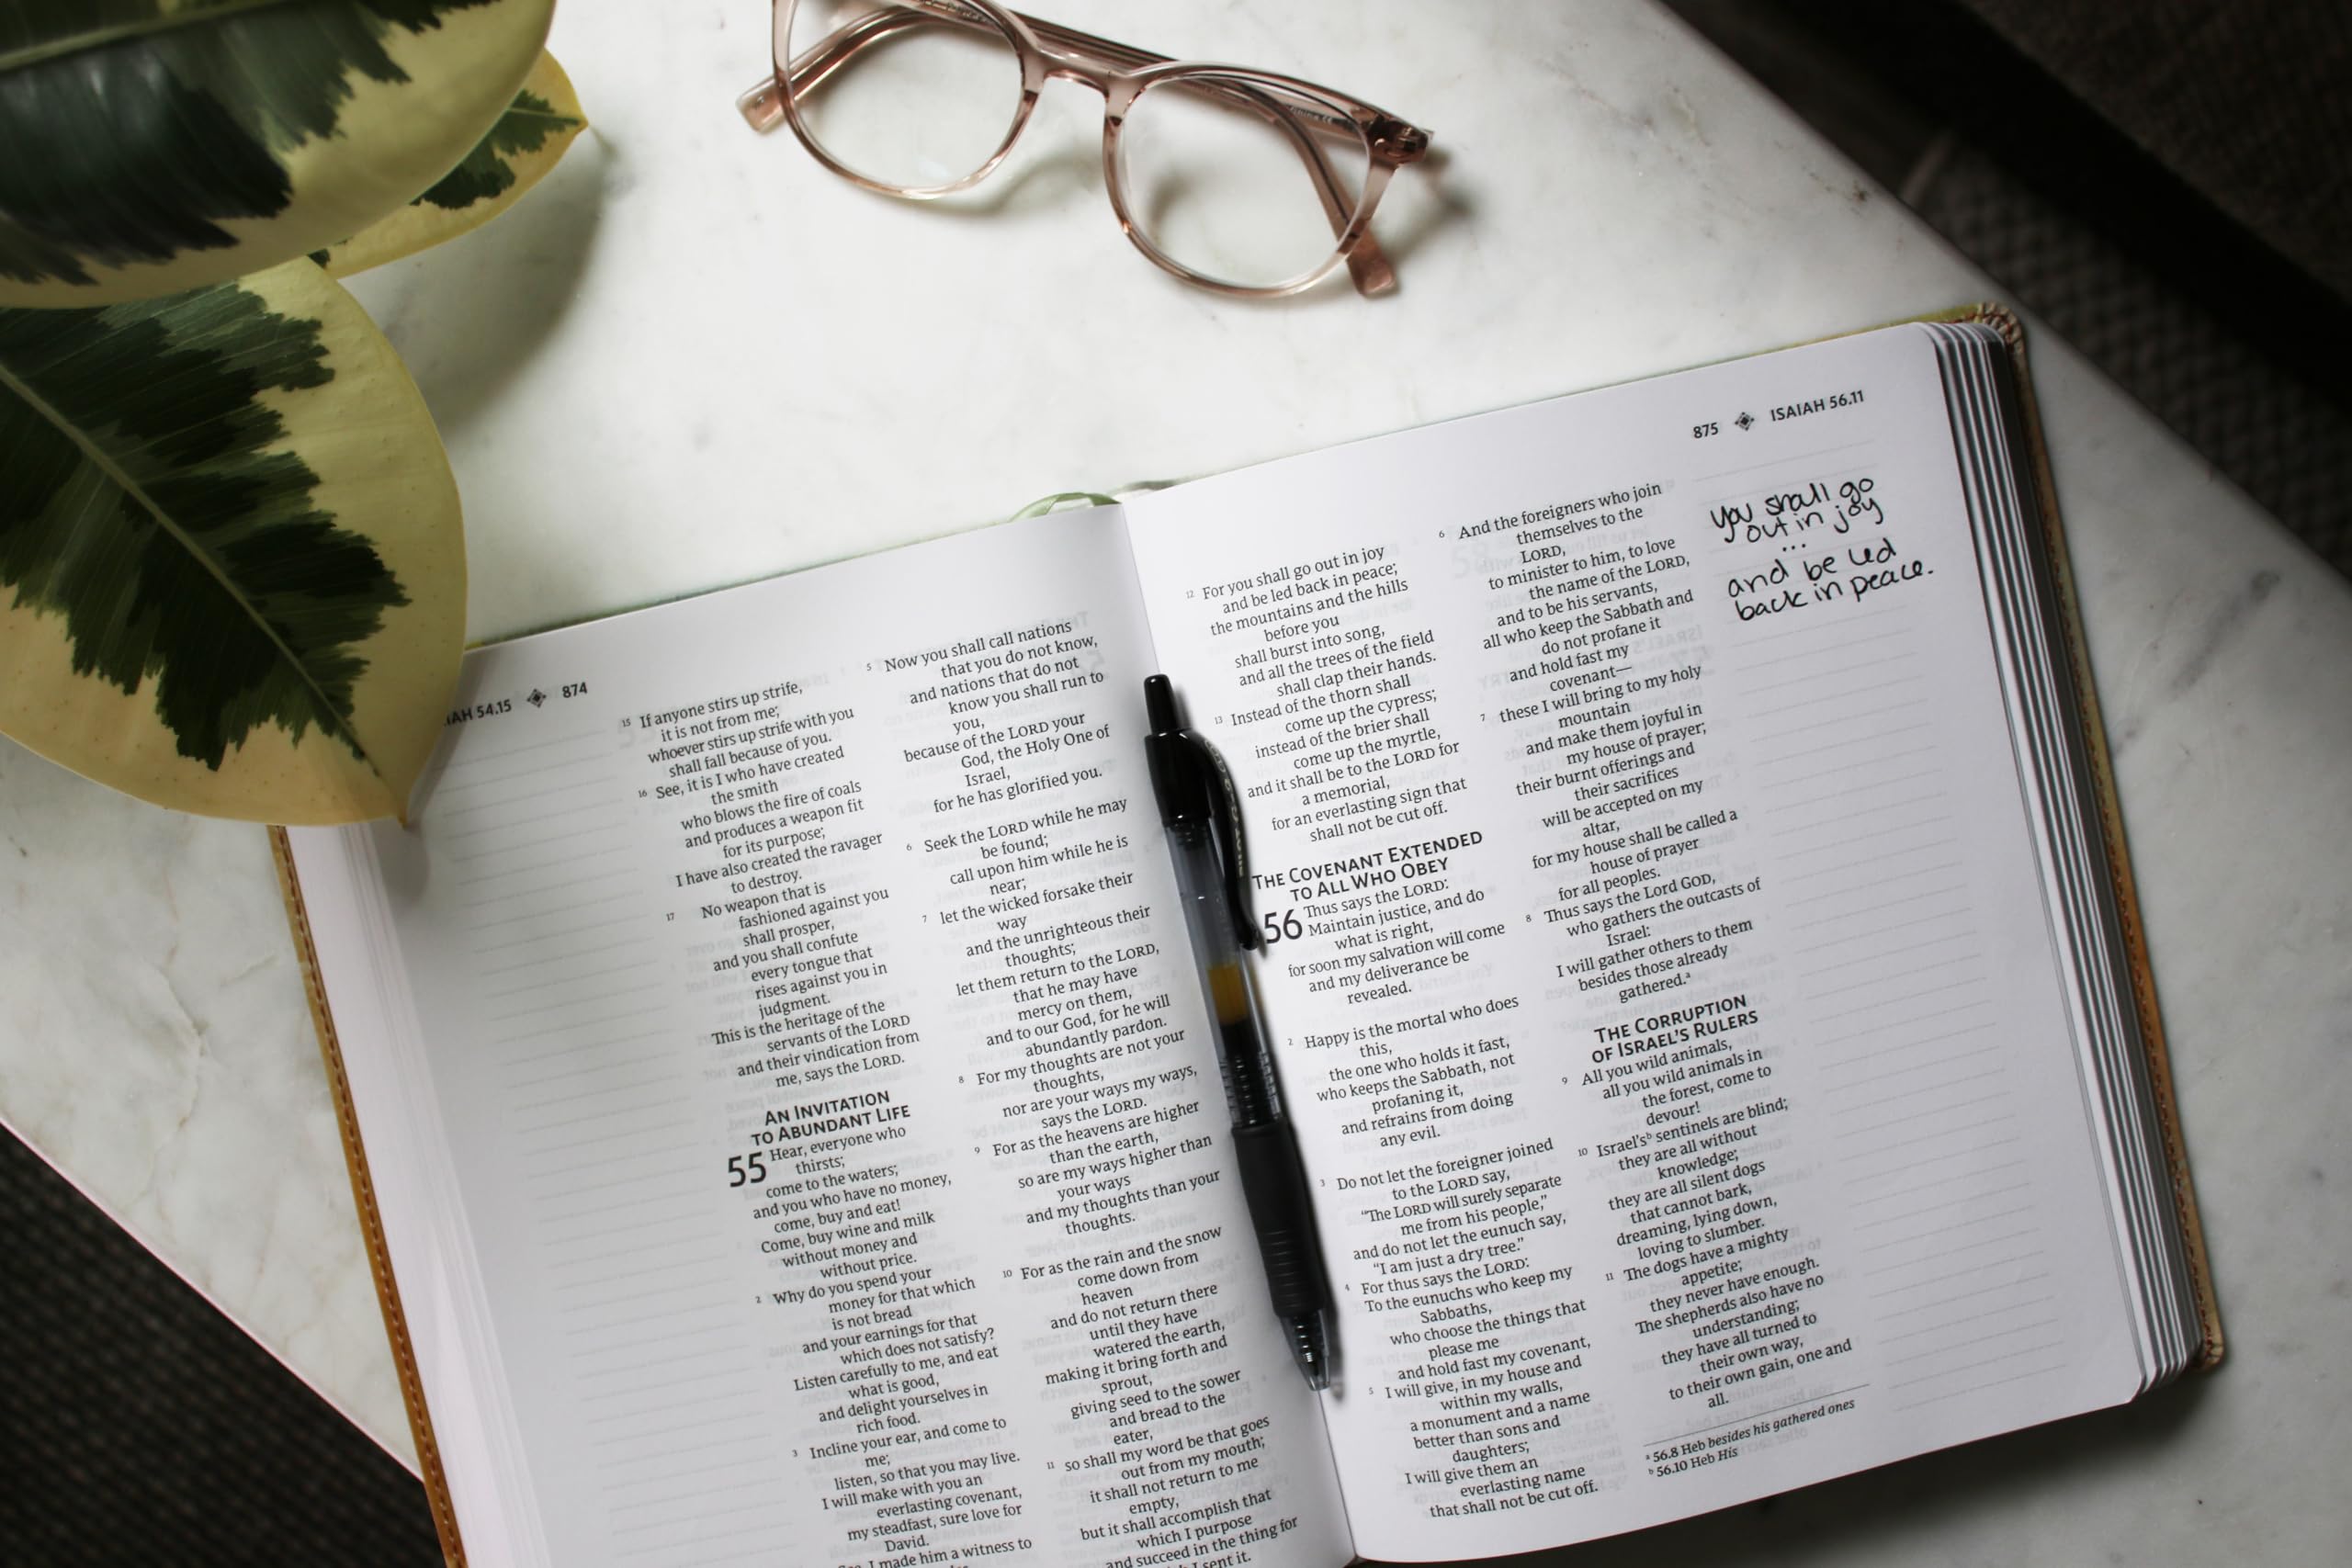 IAH 54.15 874
15 If anyone stirs up strife,
it is not from me;
whoever stirs up strife with you
shall fall because of you.
16 See, it is I who have created
the smith
who blows the fire of coals
and produces a weapon fit
for its purpose;
I have also created the ravager
to destroy.
17 No weapon that is
fashioned against you
shall prosper,
and you shall confute
every tongue that
rises against you in
judgment.
This is the heritage of the
servants of the LORD
and their vindication from
me, says the LORD.
AN INVITATION
TO ABUNDANT LIFE
55 Hear, everyone who
thirsts;
come to the waters;
and you who have no money,
come, buy and eat!
Come, buy wine and milk
without money and
without price.
2 Why do you spend your
money for that which
is not bread
and your earnings for that
which does not satisfy?
Listen carefully to me, and eat
what is good,
and delight yourselves in
rich food.
3 Incline your ear, and come to
me;
listen, so that you may live.
I will make with you an
everlasting covenant,
my steadfast, sure love for
David.
See, I made him a witness to
5 Now you shall call nations
that you do not know,
and nations that do not
know you shall run to
you,
because of the LORD your
God, the Holy One of
Israel,
for he has glorified you.
6 Seek the LORD while he may
be found;
call upon him while he is
near;
7 let the wicked forsake their
way
and the unrighteous their
thoughts;
let them return to the LORD,
that he may have
mercy on them,
and to our God, for he will
abundantly pardon.
8 For my thoughts are not your
thoughts,
nor are your ways my ways,
says the LORD.
9 For as the heavens are higher
than the earth,
so are my ways higher than
your ways
and my thoughts than your
thoughts.
10 For as the rain and the snow
come down from
heaven
and do not return there
until they have
watered the earth,
making it bring forth and
sprout,
giving seed to the sower
and bread to the
eater,
11 so shall my word be that goes
out from my mouth;
it shall not return to me
empty,
but it shall accomplish that
which I purpose
and succeed in the thing for
I sent it.
875 ISAIAH 56.11
12 For you shall go out in joy
and be led back in peace;
the mountains and the hills
before you
shall burst into song,
and all the trees of the field
shall clap their hands.
13 Instead of the thorn shall
come up the cypress;
instead of the brier shall
come up the myrtle,
and it shall be to the LORD for
a memorial,
for an everlasting sign that
shall not be cut off.
THE COVENANT EXTENDED
TO ALL WHO OBEY
56 Thus says the LORD:
Maintain justice, and do
what is right,
for soon my salvation will come
and my deliverance be
revealed.
2 Happy is the mortal who does
this,
the one who holds it fast,
who keeps the Sabbath, not
profaning it,
and refrains from doing
any evil.
3 Do not let the foreigner joined
to the LORD say,
“The LORD will surely separate
me from his people,”
and do not let the eunuch say,
“I am just a dry tree.”
4 For thus says the LORD:
To the eunuchs who keep my
Sabbaths,
who choose the things that
please me
and hold fast my covenant,
5 I will give, in my house and
within my walls,
a monument and a name
better than sons and
daughters;
I will give them an
everlasting name
that shall not be cut off.
6 And the foreigners who join
themselves to the
LORD,
to minister to him, to love
the name of the LORD,
and to be his servants,
all who keep the Sabbath and
do not profane it
and hold fast my
covenant—
7 these I will bring to my holy
mountain
and make them joyful in
my house of prayer;
their burnt offerings and
their sacrifices
will be accepted on my
altar,
for my house shall be called a
house of prayer
for all peoples.
8 Thus says the Lord GOD,
who gathers the outcasts of
Israel:
I will gather others to them
besides those already
gathered.a
THE CORRUPTION
OF ISRAEL'S RULERS
9 All you wild animals,
all you wild animals in
the forest, come to
devour!
10 Israel'sb sentinels are blind;
they are all without
knowledge;
they are all silent dogs
that cannot bark,
dreaming, lying down,
loving to slumber.
11 The dogs have a mighty
appetite;
they never have enough.
The shepherds also have no
understanding;
they have all turned to
their own way,
to their own gain, one and
all.
a 56.8 Heb besides his gathered ones
b 56.10 Heb His
you shall go
out in joy
...
and be led
back in peace.